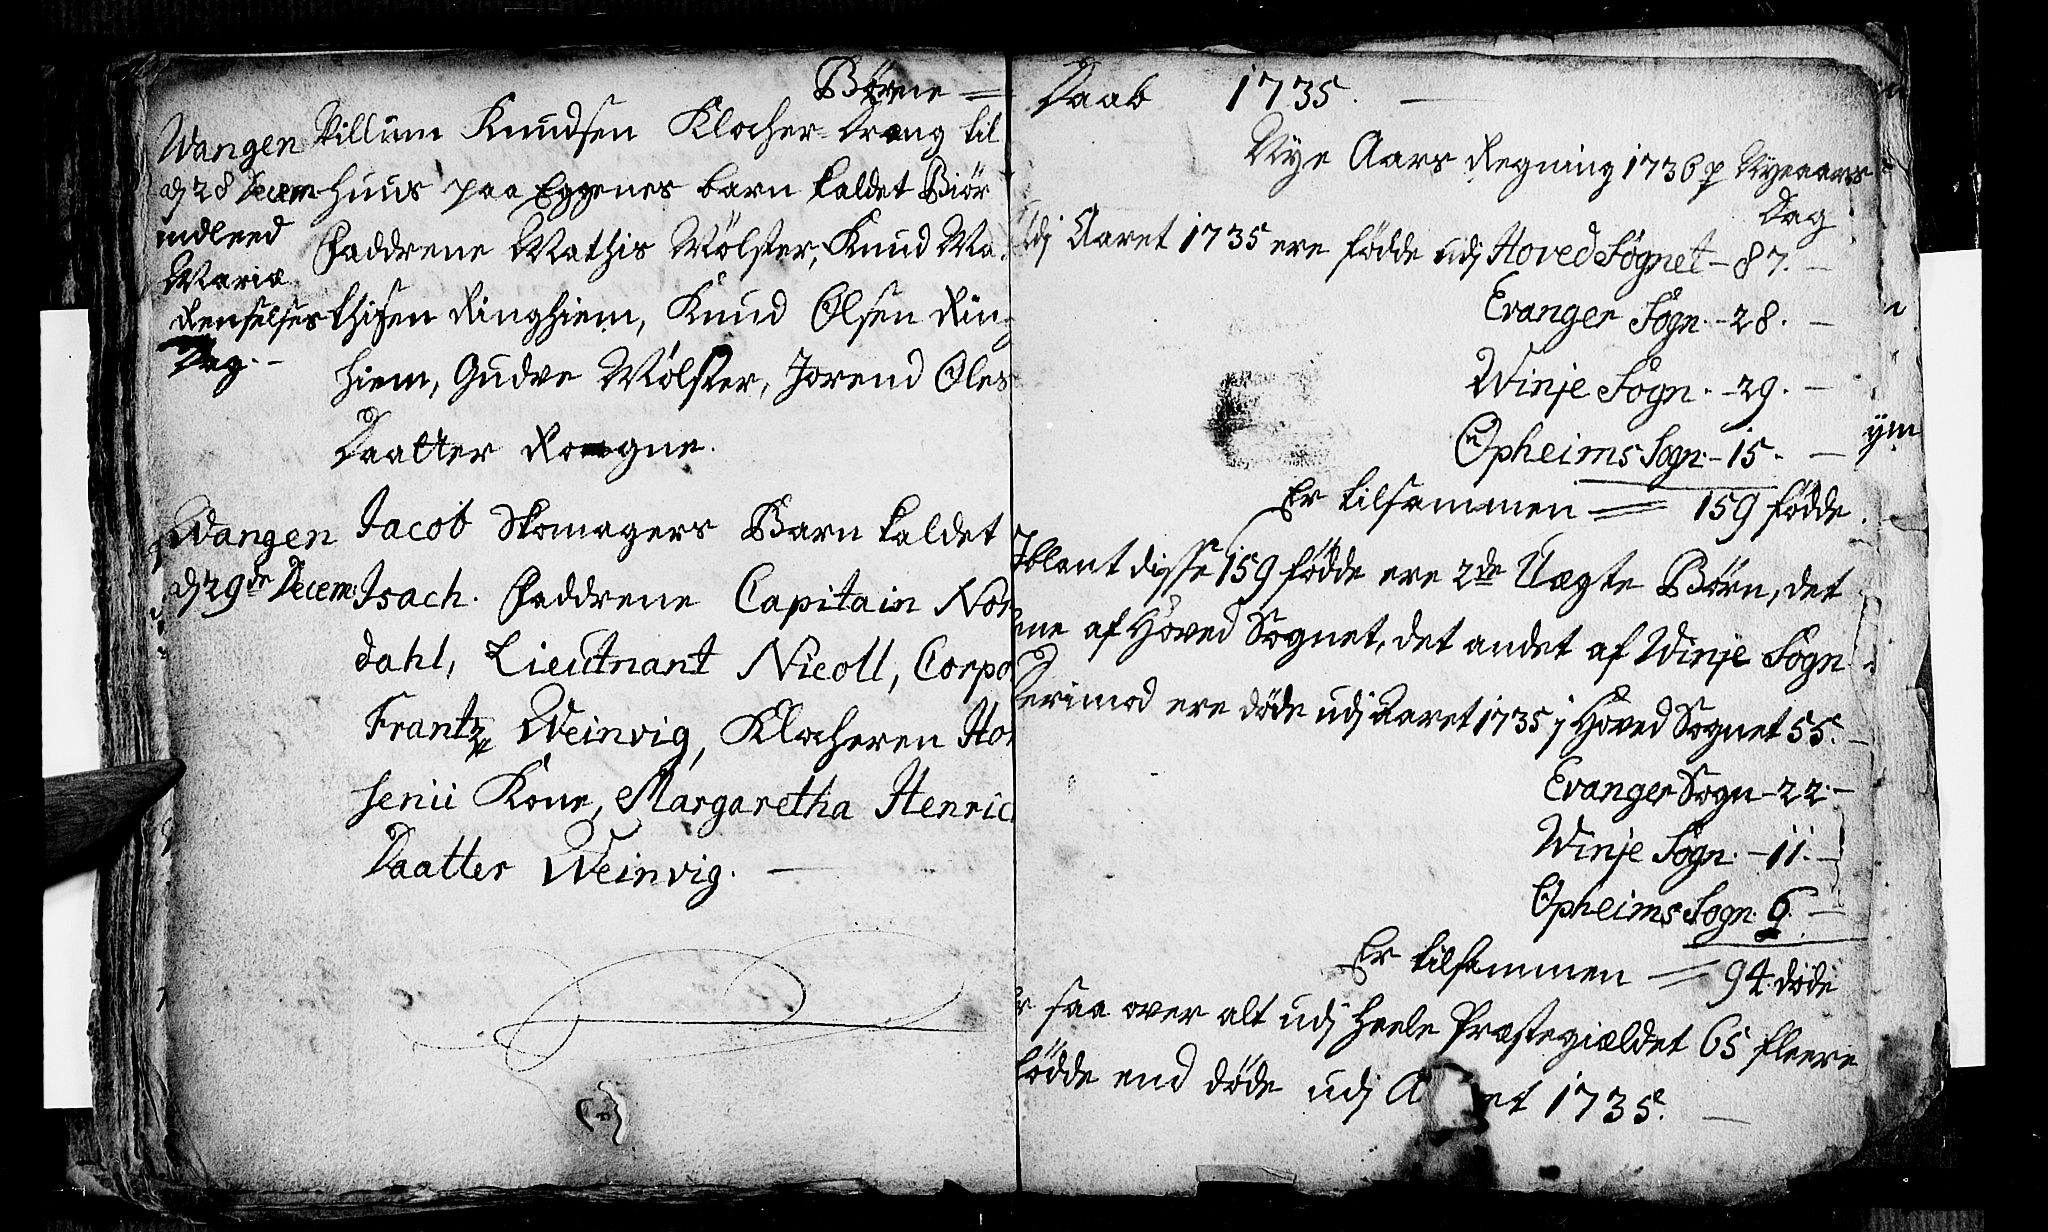 Børne =
Wangen
dj 28 Decem
indleed
Mariæ
Renselses
Dag. -
Villum Knudsen Klocher-Dreng til
huus paa Eggenes barn kaldet Biør
Faddrene Mathis Mølster, Knud Ma-
thisen Ringhiem, Knud Olsen Rin-
hiem, Gudve Mølster, Jorend Oles
Daatter Rogne.
Wangen
dj 29de Decem
Jacob Skomagers Barn kaldet
Isach. Faddrene Capitain Nor
dahl, Lieutnant Nicoll, Corpo
Frantz Weinvig, Klocheren Ho
senii Kone, Margaretha Henric
Daatter Weinvig. —
Daab 1735. —
Nye Aars Regning 1736 p Nyeaars
Dag
Udj Aaret 1735 ere fødde udj Hoved Sognet - 87. -
Evanger Sogn. - 28. -
Winje Sogn. - 29. -
Opheims Sogn. - 15. -
Er tilsammen = 159 fødde.
Iblant disse 159 fødde ere 2de Uægte Børn, det
ene af Hoved Sognet, det andet af Winje Sogn
Derimod ere døde udj Aaret 1735 j Hoved Sognet 55. -
Evanger Sogn - 22. -
Winje Sogn. - 11. -
Opheims Sogn. 6. -
Er tilsammen = 94. døde
r saa over alt udj heele Præstegieldet 65 fleere
fødde end døde udj A et 1735. —
ym